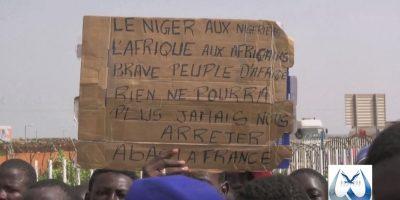 LE NIGER AUX NIGERIENS
L'AFRIQUE AUX AFRICAINS
BRAVE PEUPLE D'AFRIQUE
RIEN NE POURRA
PLUS JAMAIS NOUS
ARRETER
ABAS LA FRANCE